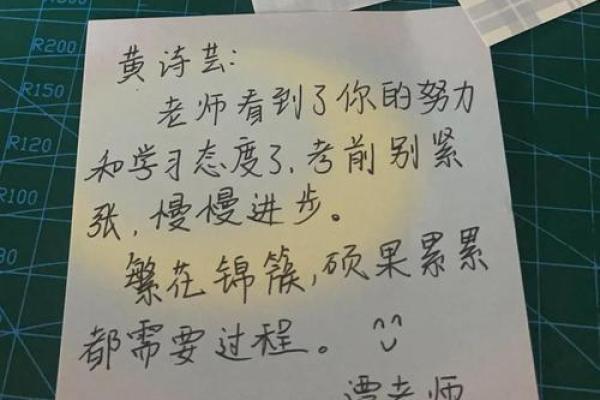 R200
R150
R120
R100
黄诗芸:
老师看到了你的努力
和学习态度了,考前别紧
张,慢慢进步。
繁花锦簇,硕果累累
都需要过程。
谭老师